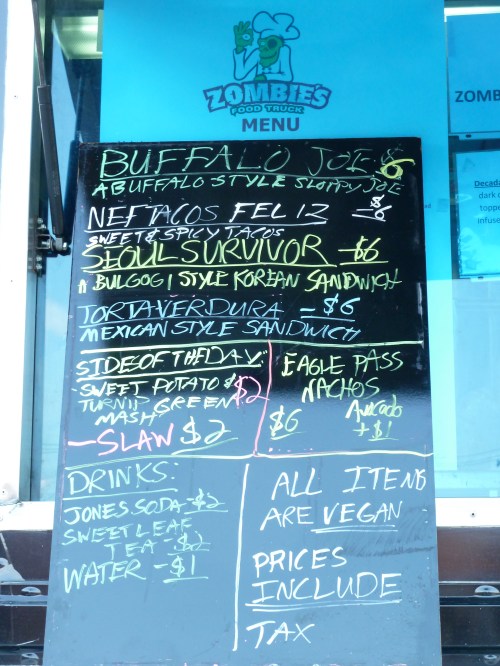 ZOMBIE'S
FOOD TRUCK
MENU
ZOMB
Decada
dark c
toppe
infuse
BUFFALO JOE $6
A BUFFALO STYLE SLOPPY JOE
NEFTACOS FEL 12 $6
SWEET & SPICY TACOS
SEOUL SURVIVOR - $6
A BULGOGI STYLE KOREAN SANDWICH
TORTA VERDURA - $6
MEXICAN STYLE SANDWICH
SIDES OF THE DAY:
SWEET POTATO &
TURNIP GREEN $2
MASH
- SLAW $2
EAGLE PASS
NACHOS
$6 Avocado
+ $1
DRINKS:
JONES SODA - $2
SWEET LEAF
TEA - $2
WATER - $1
ALL ITEMS
ARE VEGAN
PRICES
INCLUDE
TAX